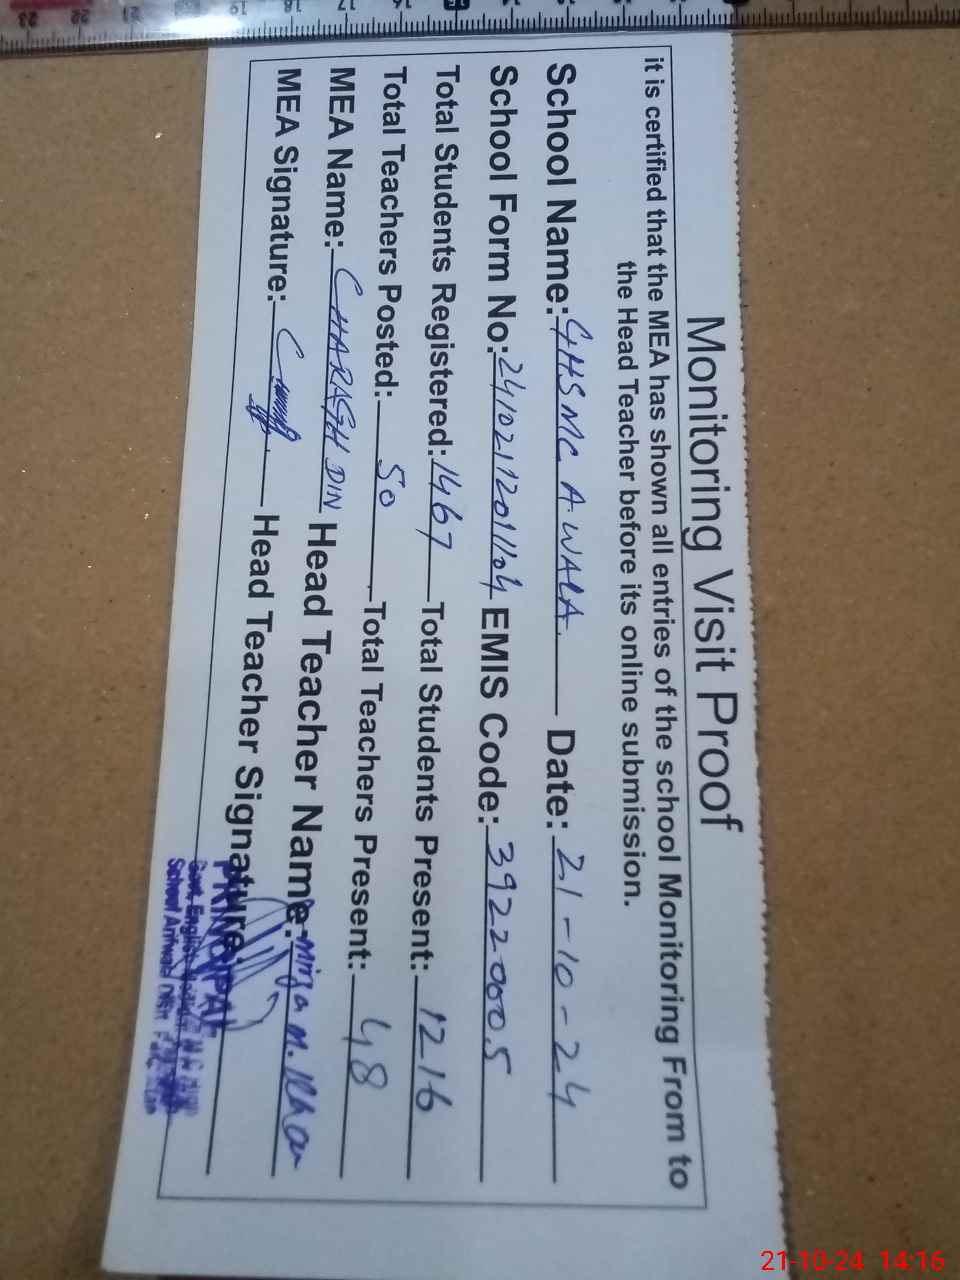 Monitoring Visit Proof
it is certified that the MEA has shown all entries of the school Monitoring From to
the Head Teacher before its online submission.
School Name: GHS MC AWALA. Date: 21-10-24
School Form No: 24102112011104 EMIS Code: 39220005
Total Students Registered: 1467 Total Students Present: 1216
Total Teachers Posted: 50 Total Teachers Present: 48
MEA Name: CHARAGH DIN Head Teacher Name: Mirza M. Khan
MEA Signature: Head Teacher Signature:
PRINCIPAL
Govt. English
School Arifwala Distt
21-10-24 14:16